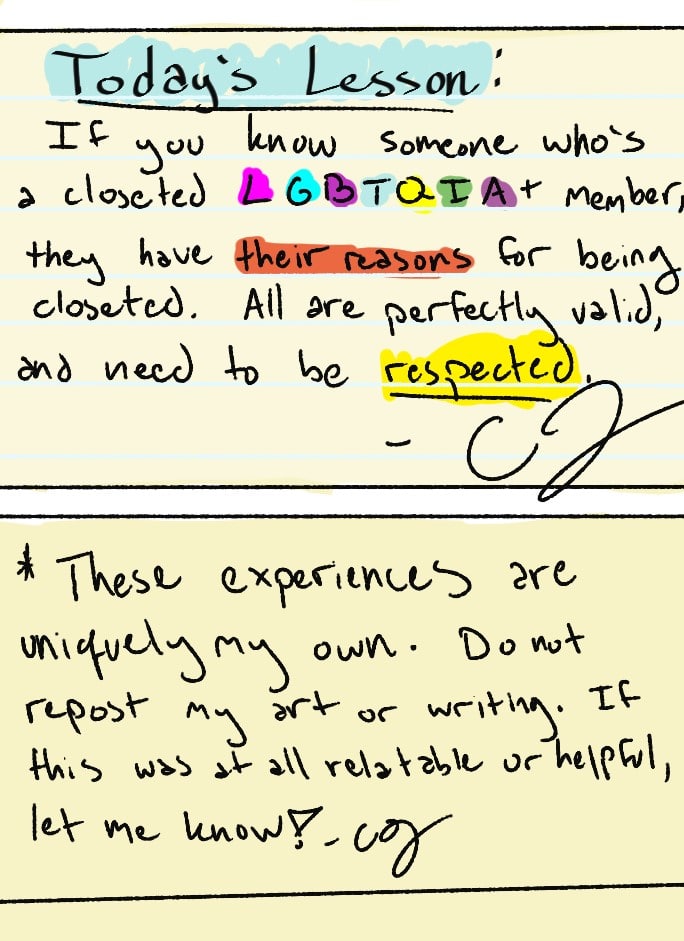 Today's Lesson:
If you know someone who's
a closeted LGBTQIA+ member,
they have their reasons for being
closeted. All are perfectly valid,
and need to be respected.
- CJ
* These experiences are
uniquely my own. Do not
repost my art or writing. If
this was at all relatable or helpful,
let me know! - CJ